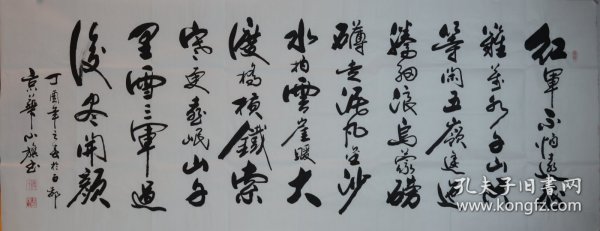 红軍不怕遠征
難萬水千山只
等閑五嶺逶迤
騰細浪烏蒙磅
礴走泥丸金沙
水拍雲崖暖大
渡橋横鐵索
寒更喜岷山千
里雪三軍過
後尽開顔
丁酉年之春於
京華小書
孔夫子旧书网
www.kongfz.com